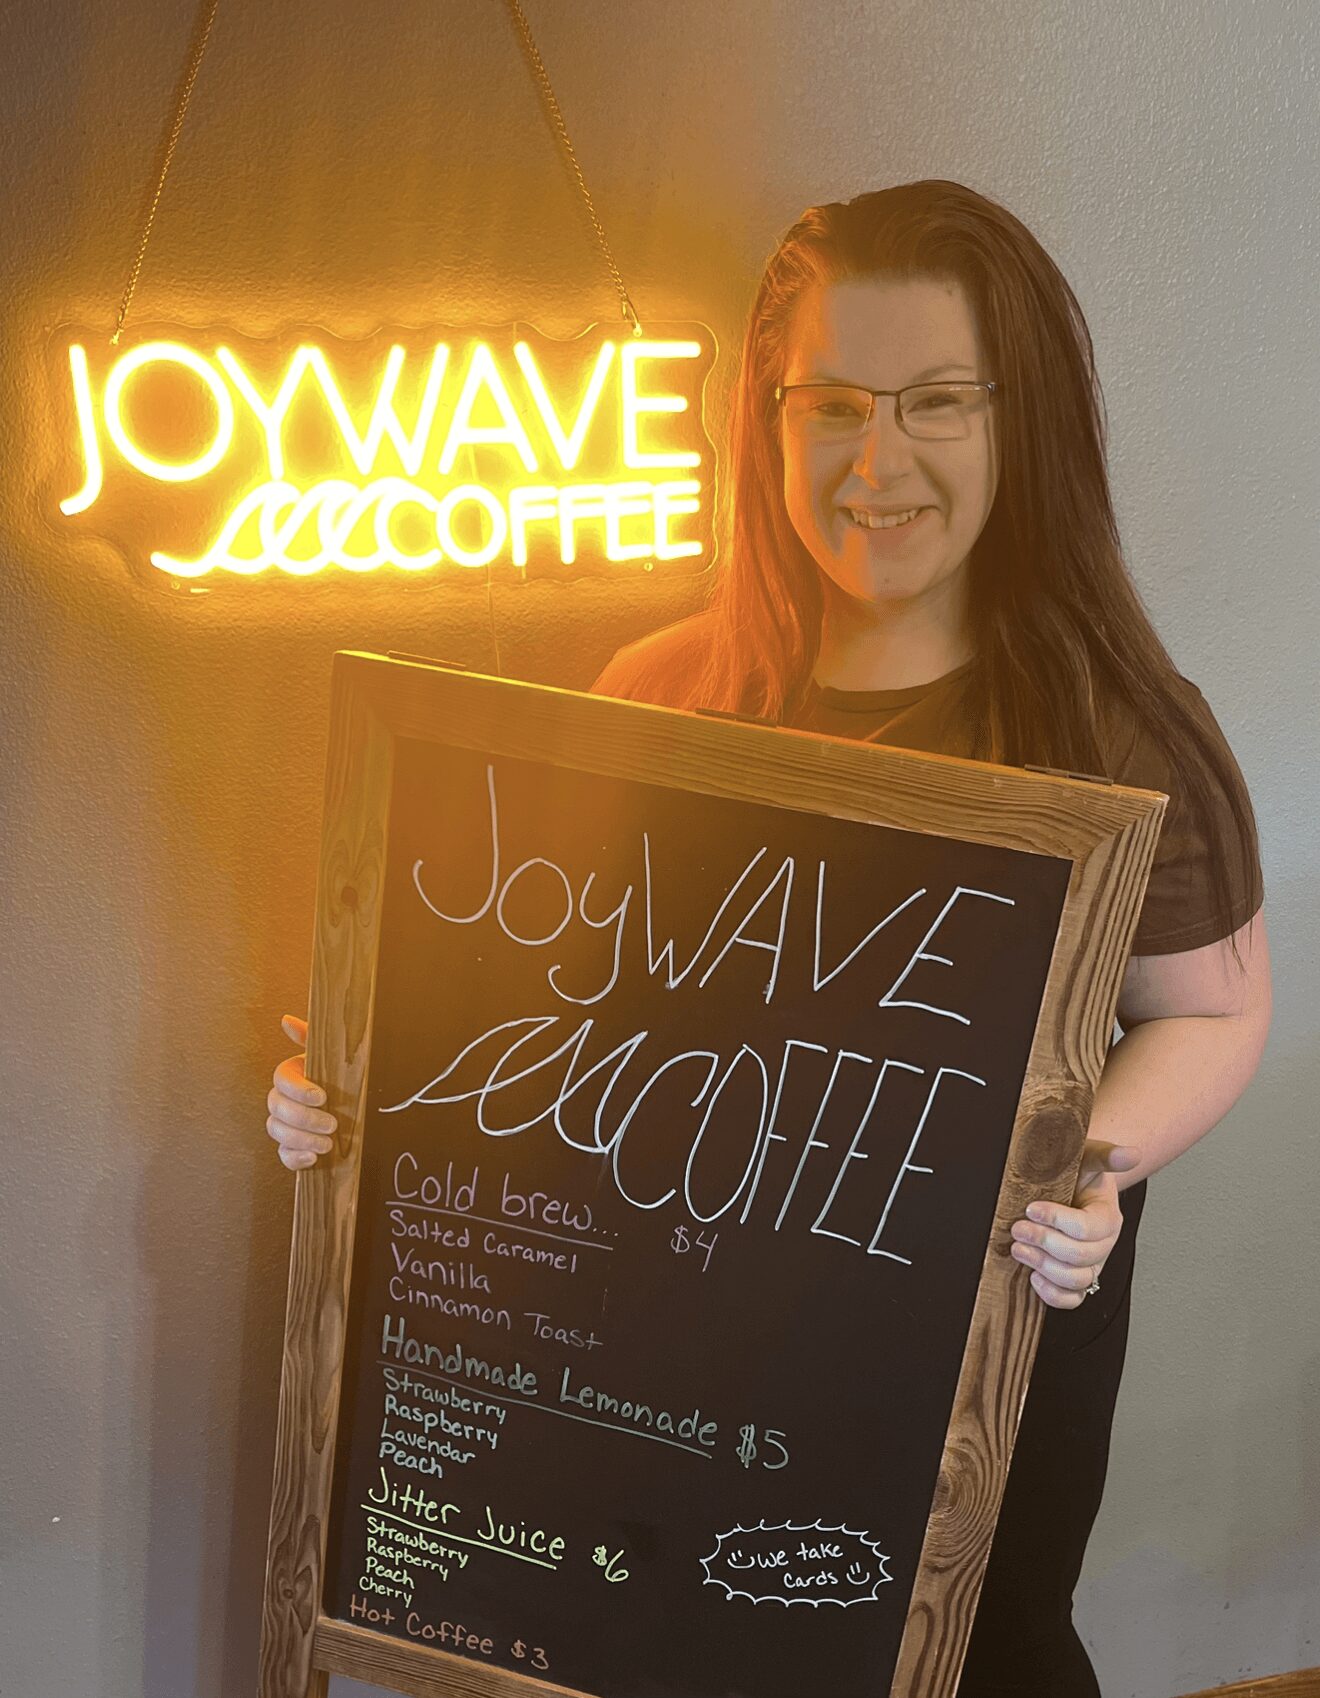 JOYWAVE
COFFEE
JoyWAVE
COFFEE
Cold brew... $4
Salted Caramel
Vanilla
Cinnamon Toast
Handmade Lemonade $5
Strawberry
Raspberry
Lavendar
Peach
Jitter Juice $6
Strawberry
Raspberry
Peach
Cherry
we take
cards
Hot Coffee $3